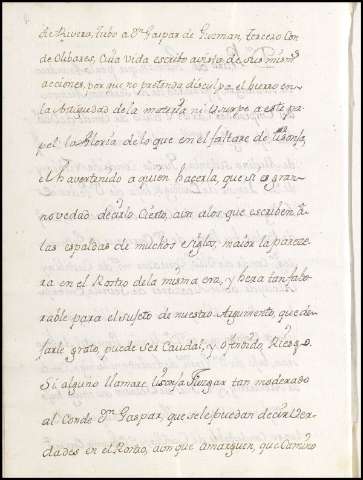 de Rivero, tubo a Dn Gaspar de Gusman, tercero Con
de Olibares, Cuia Vida escrivo a vista de sus mismas
acciones, por que no pretenda disculpa el hierro en
la Antiguedad de la materia ni usurpe a este pa
pel la Gloria de lo que en el faltare de lisonja,
el haver tenido a quien hacerla, que si es gran
novedad decirlo Cierto, aun a los que escriben â
las espaldas de muchos siglos, maior la parece
ra en el Rostro de la misma era, y hera tan fabo
rable para el sujeto de nuestro Argumento, que de
jarle grato, puede ser Caudal, y ofendido, Riesgo.
Si alguno llamare lisonja Juzgar tan moderado
al Conde Dn Gaspar, que se le puedan decir Ver
dades en el Rostro, aunque amarguen, que Camino